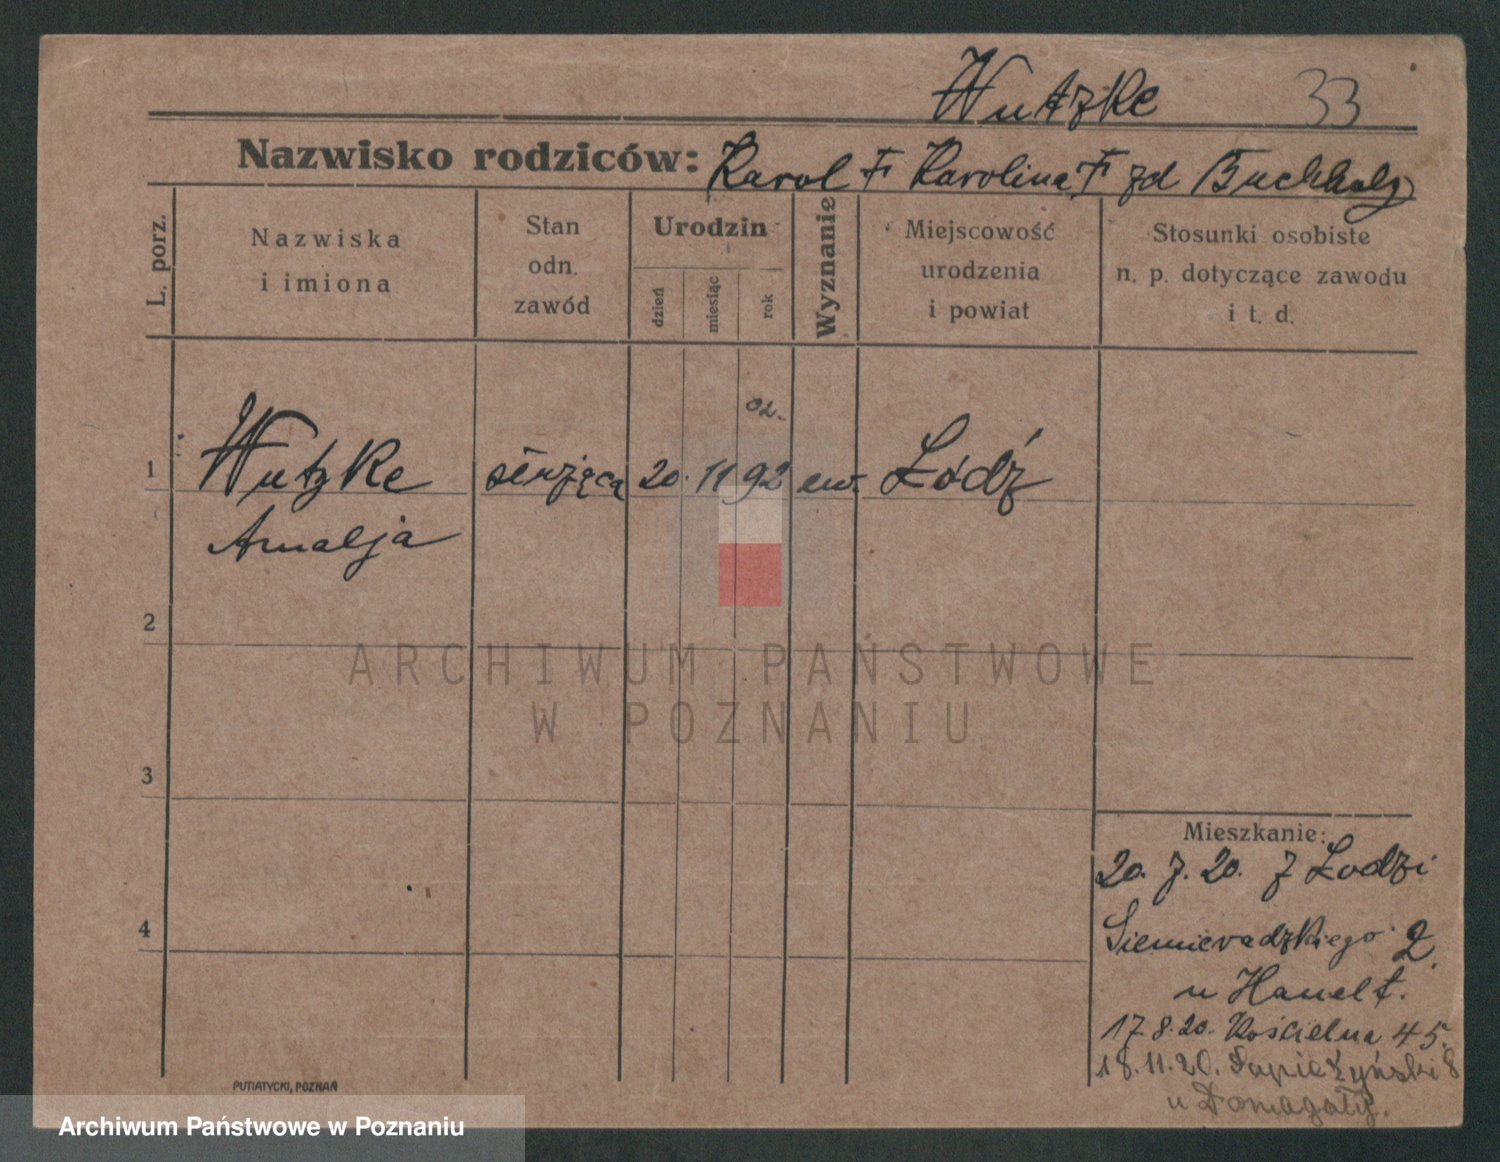 Wutzke 33
Nazwisko rodziców: Karol † Karolina † zd Buchholz
L. porz.
Nazwiska
i imiona
Stan
odn.
zawód
Urodzin
dzień
miesiąc
rok
Wyznanie
Miejscowość
urodzenia
i powiat
Stosunki osobiste
n. p. dotyczące zawodu
i t. d.
02.
1 Wutzke służąca 20. 11 92 ew. Łódź
Amalja
2
ARCHIWUM PAŃSTWOWE
W POZNANIU
3
Mieszkanie:
20. 7. 20. z Łodzi
4
Siemieradzkiego 2.
u Hanelt.
17.8.20. Kościelna 45.
18.11.20. Sapieżyński 8
u Domagały.
PUTIATYCKI, POZNAŃ
Archiwum Państwowe w Poznaniu